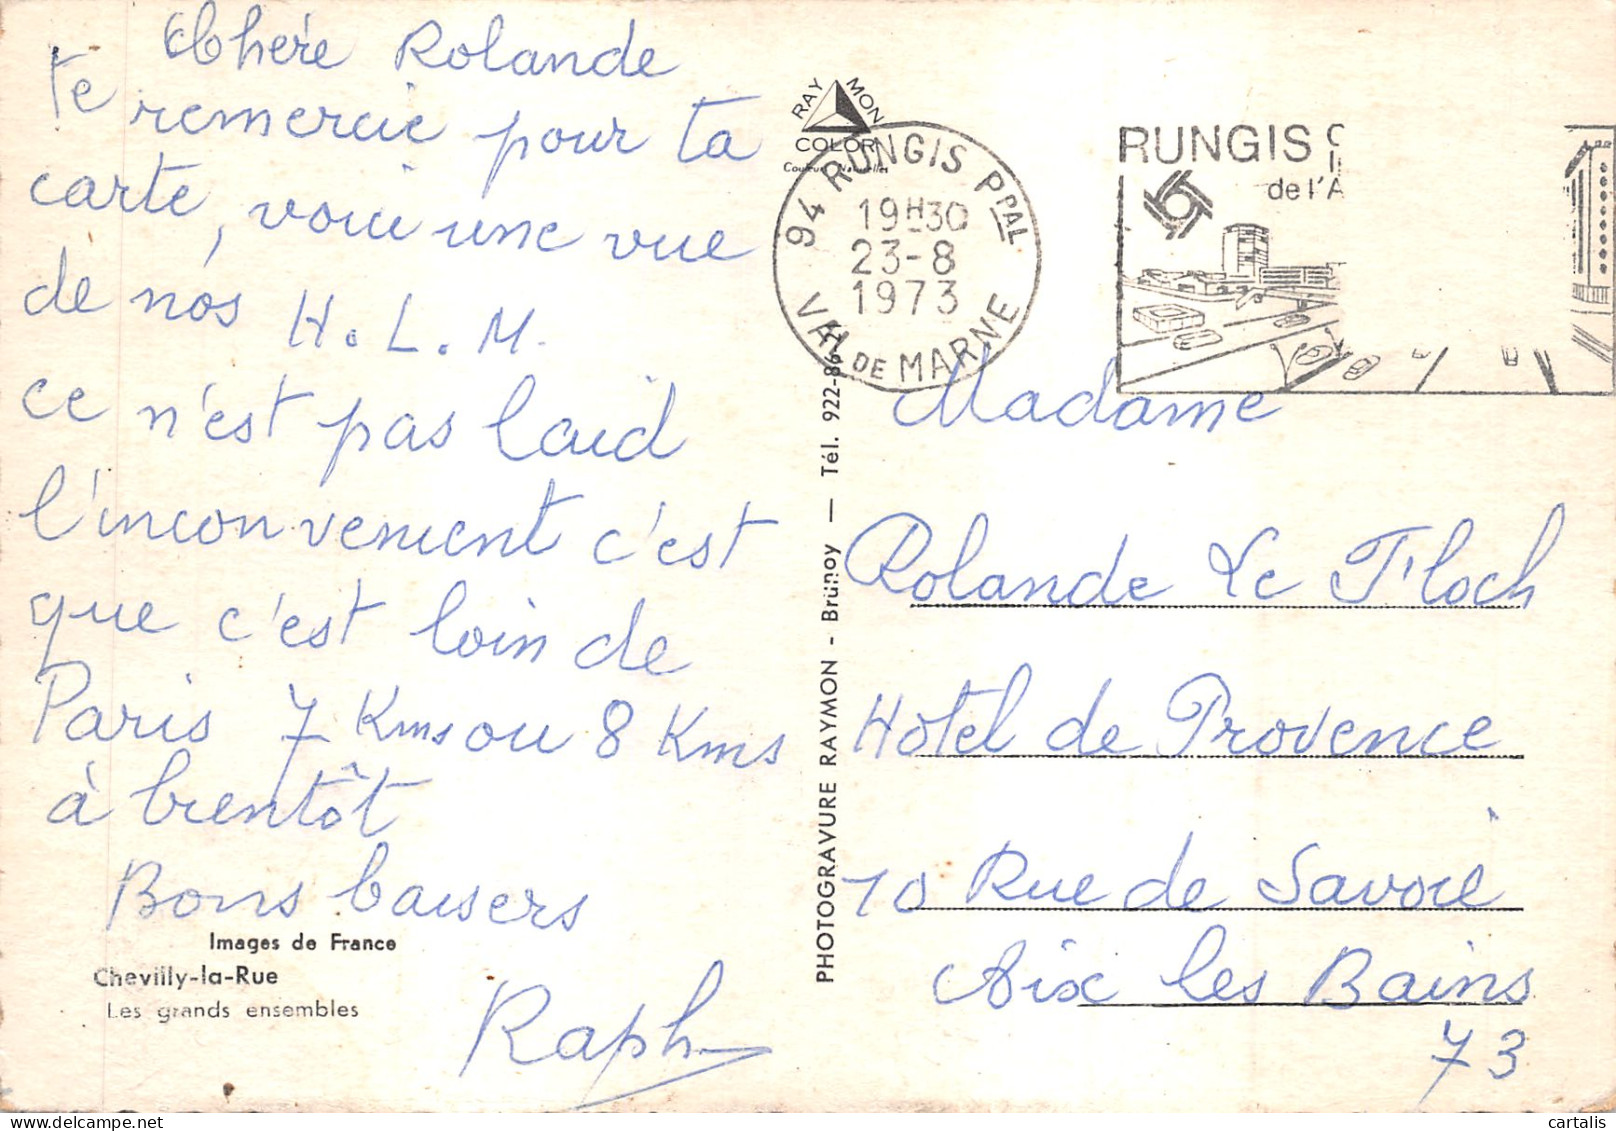 Chère Rolande
te remercie pour ta
carte, voici une vue
de nos H.L.M.
ce n'est pas laid
l'inconvenient c'est
que c'est loin de
Paris 7 Kms ou 8 Kms
à bientôt
Bons baisers
Raph
Images de France
Chevilly-la-Rue
Les grands ensembles
RAYMON
COLOR
Couleurs Naturelles
94 RUNGIS PPAL
19H30
23-8
1973
VAL DE MARNE
RUNGIS
de l'A
PHOTOGRAVURE RAYMON - Brunoy — Tél. 922-8
Madame
Rolande Le Floch
Hotel de Provence
10 Rue de Savoie
Aix les Bains
73
cartalis